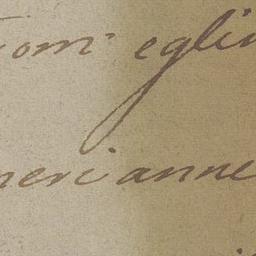 om egli
neri anne